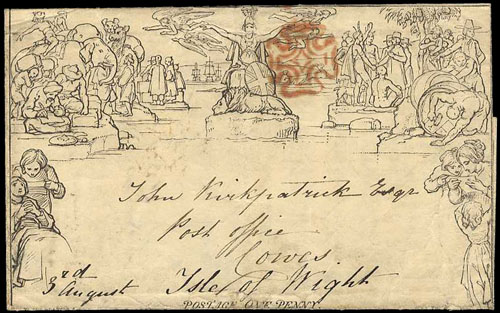 John Kirkpatrick Esqr
Post office
Cowes
Isle of Wight
3rd August
POSTAGE ONE PENNY.